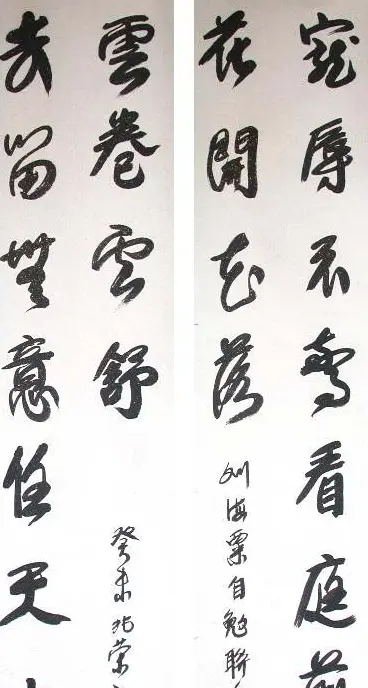 寵辱不驚看庭前
花開花落
刘海粟自勉聯
去留無意任天
雲卷雲舒
癸未荣